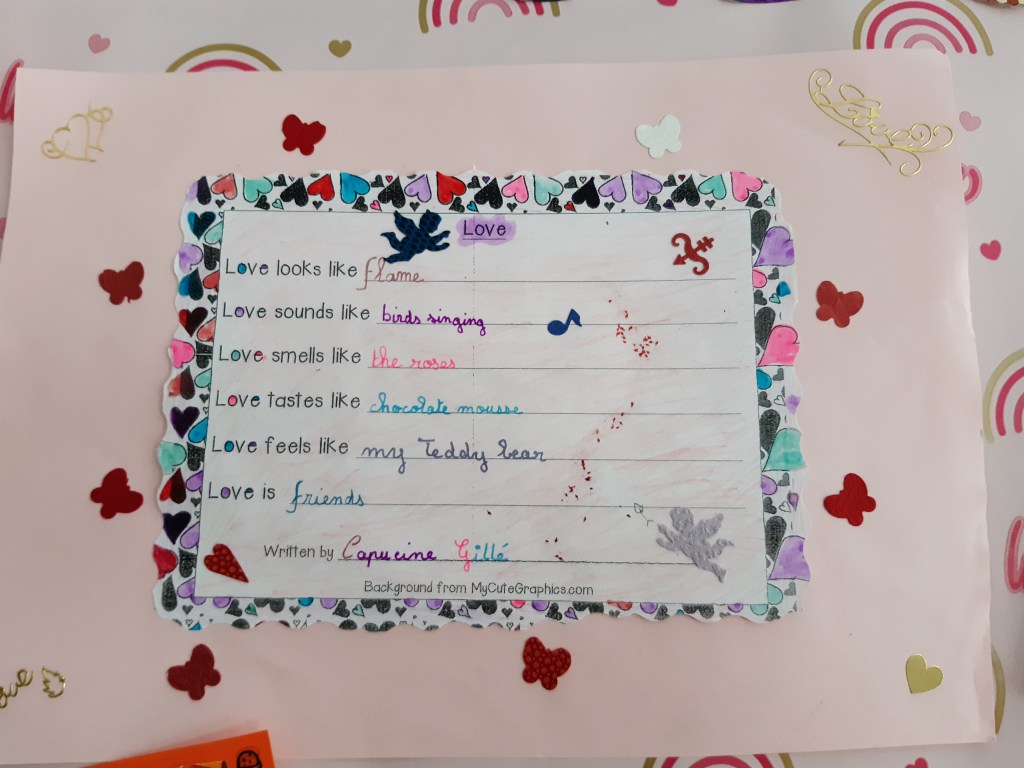 Love
Love
Love looks like flame
Love sounds like birds singing
Love smells like the roses
Love tastes like chocolate mousse
Love feels like my Teddy bear
Love is friends
Written by Capucine Gillé
Background from MyCuteGraphics.com